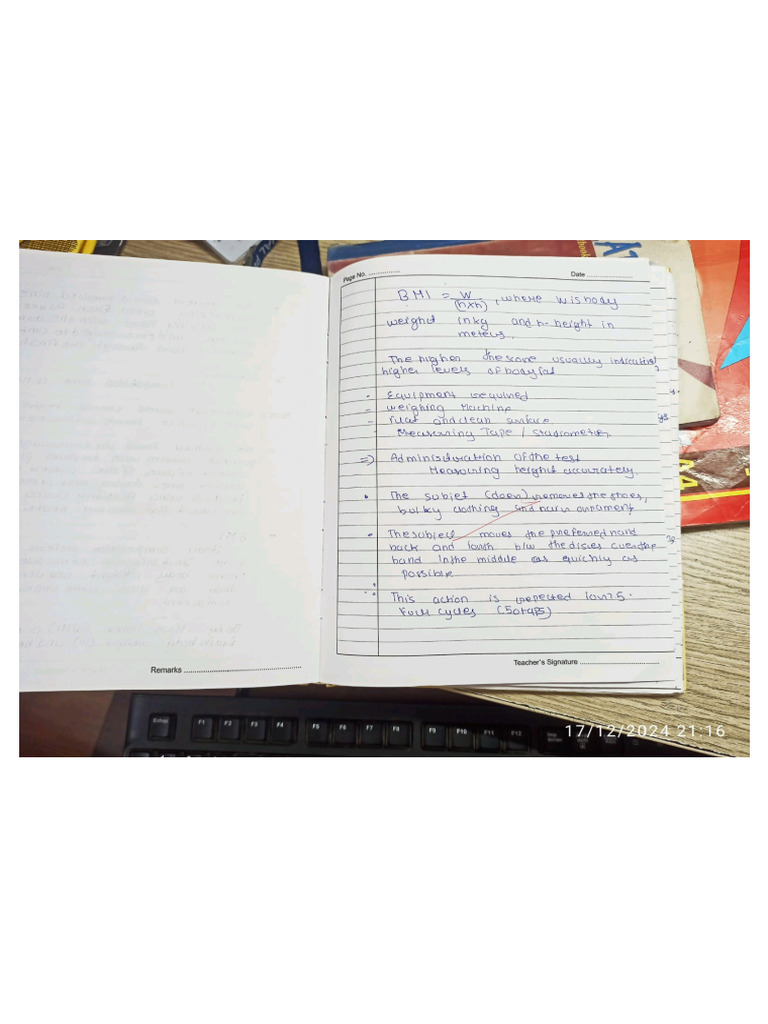 Page No. ...............
Date ........................
BMI = W/(h×h), where w is body
weight in kg and h- height in
meters.
The higher the score usually indicative
higher levels of body fat
- Equipment required
- weighing Machine
- Flat and clean surface
Measuring Tape / stadiometer
=) Administration of the test
Measuring height accurately.
• The subjet (doer) removes the shoes,
bulky clothing and hair ornament
• The subject moves the preferred hand
back and b/w the discs over the
hand in the middle as quickly as
possible
This action is repected 25.
Full cycles (50 taps)
Remarks ....................................................
Teacher's Signature ....................................
Esc F1 F2 F3 F4 F5 F6 F7 F8 F9 F10 F11 F12
17/12/2024 21:16